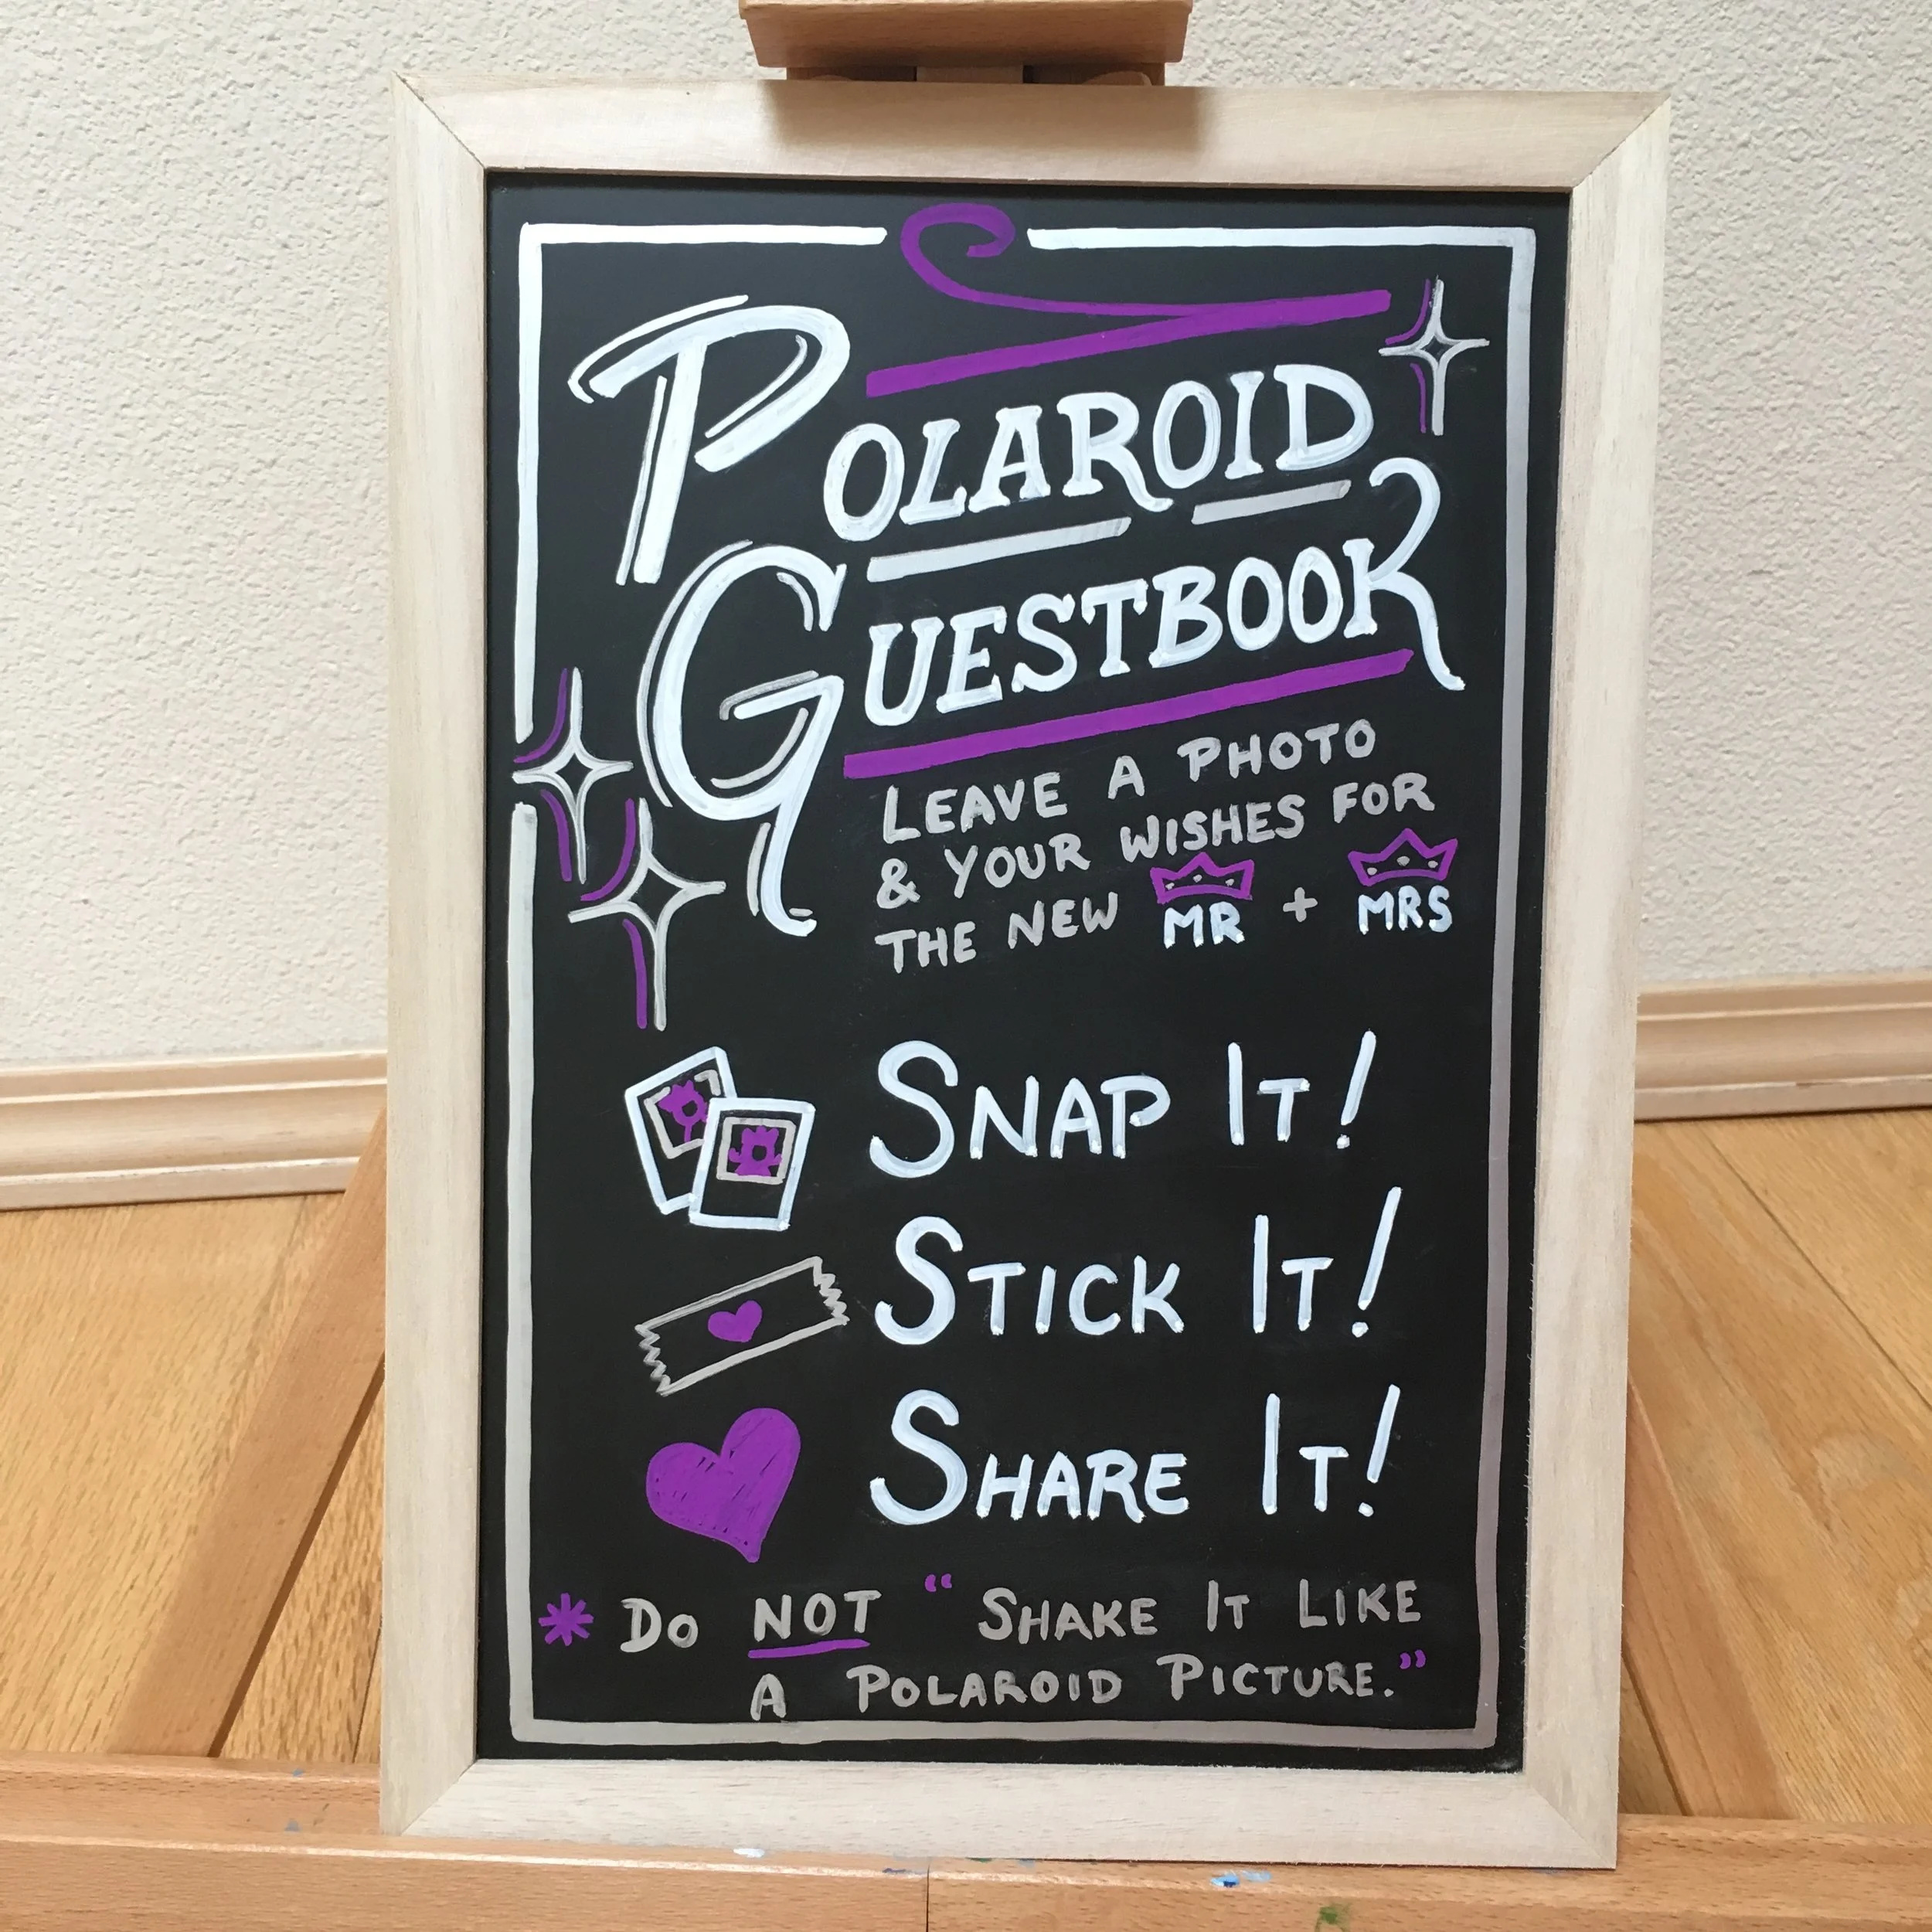 POLAROID
GUESTBOOK
LEAVE A PHOTO
& YOUR WISHES FOR
THE NEW MR + MRS
SNAP IT!
STICK IT!
SHARE IT!
* DO NOT "SHAKE IT LIKE
A POLAROID PICTURE."